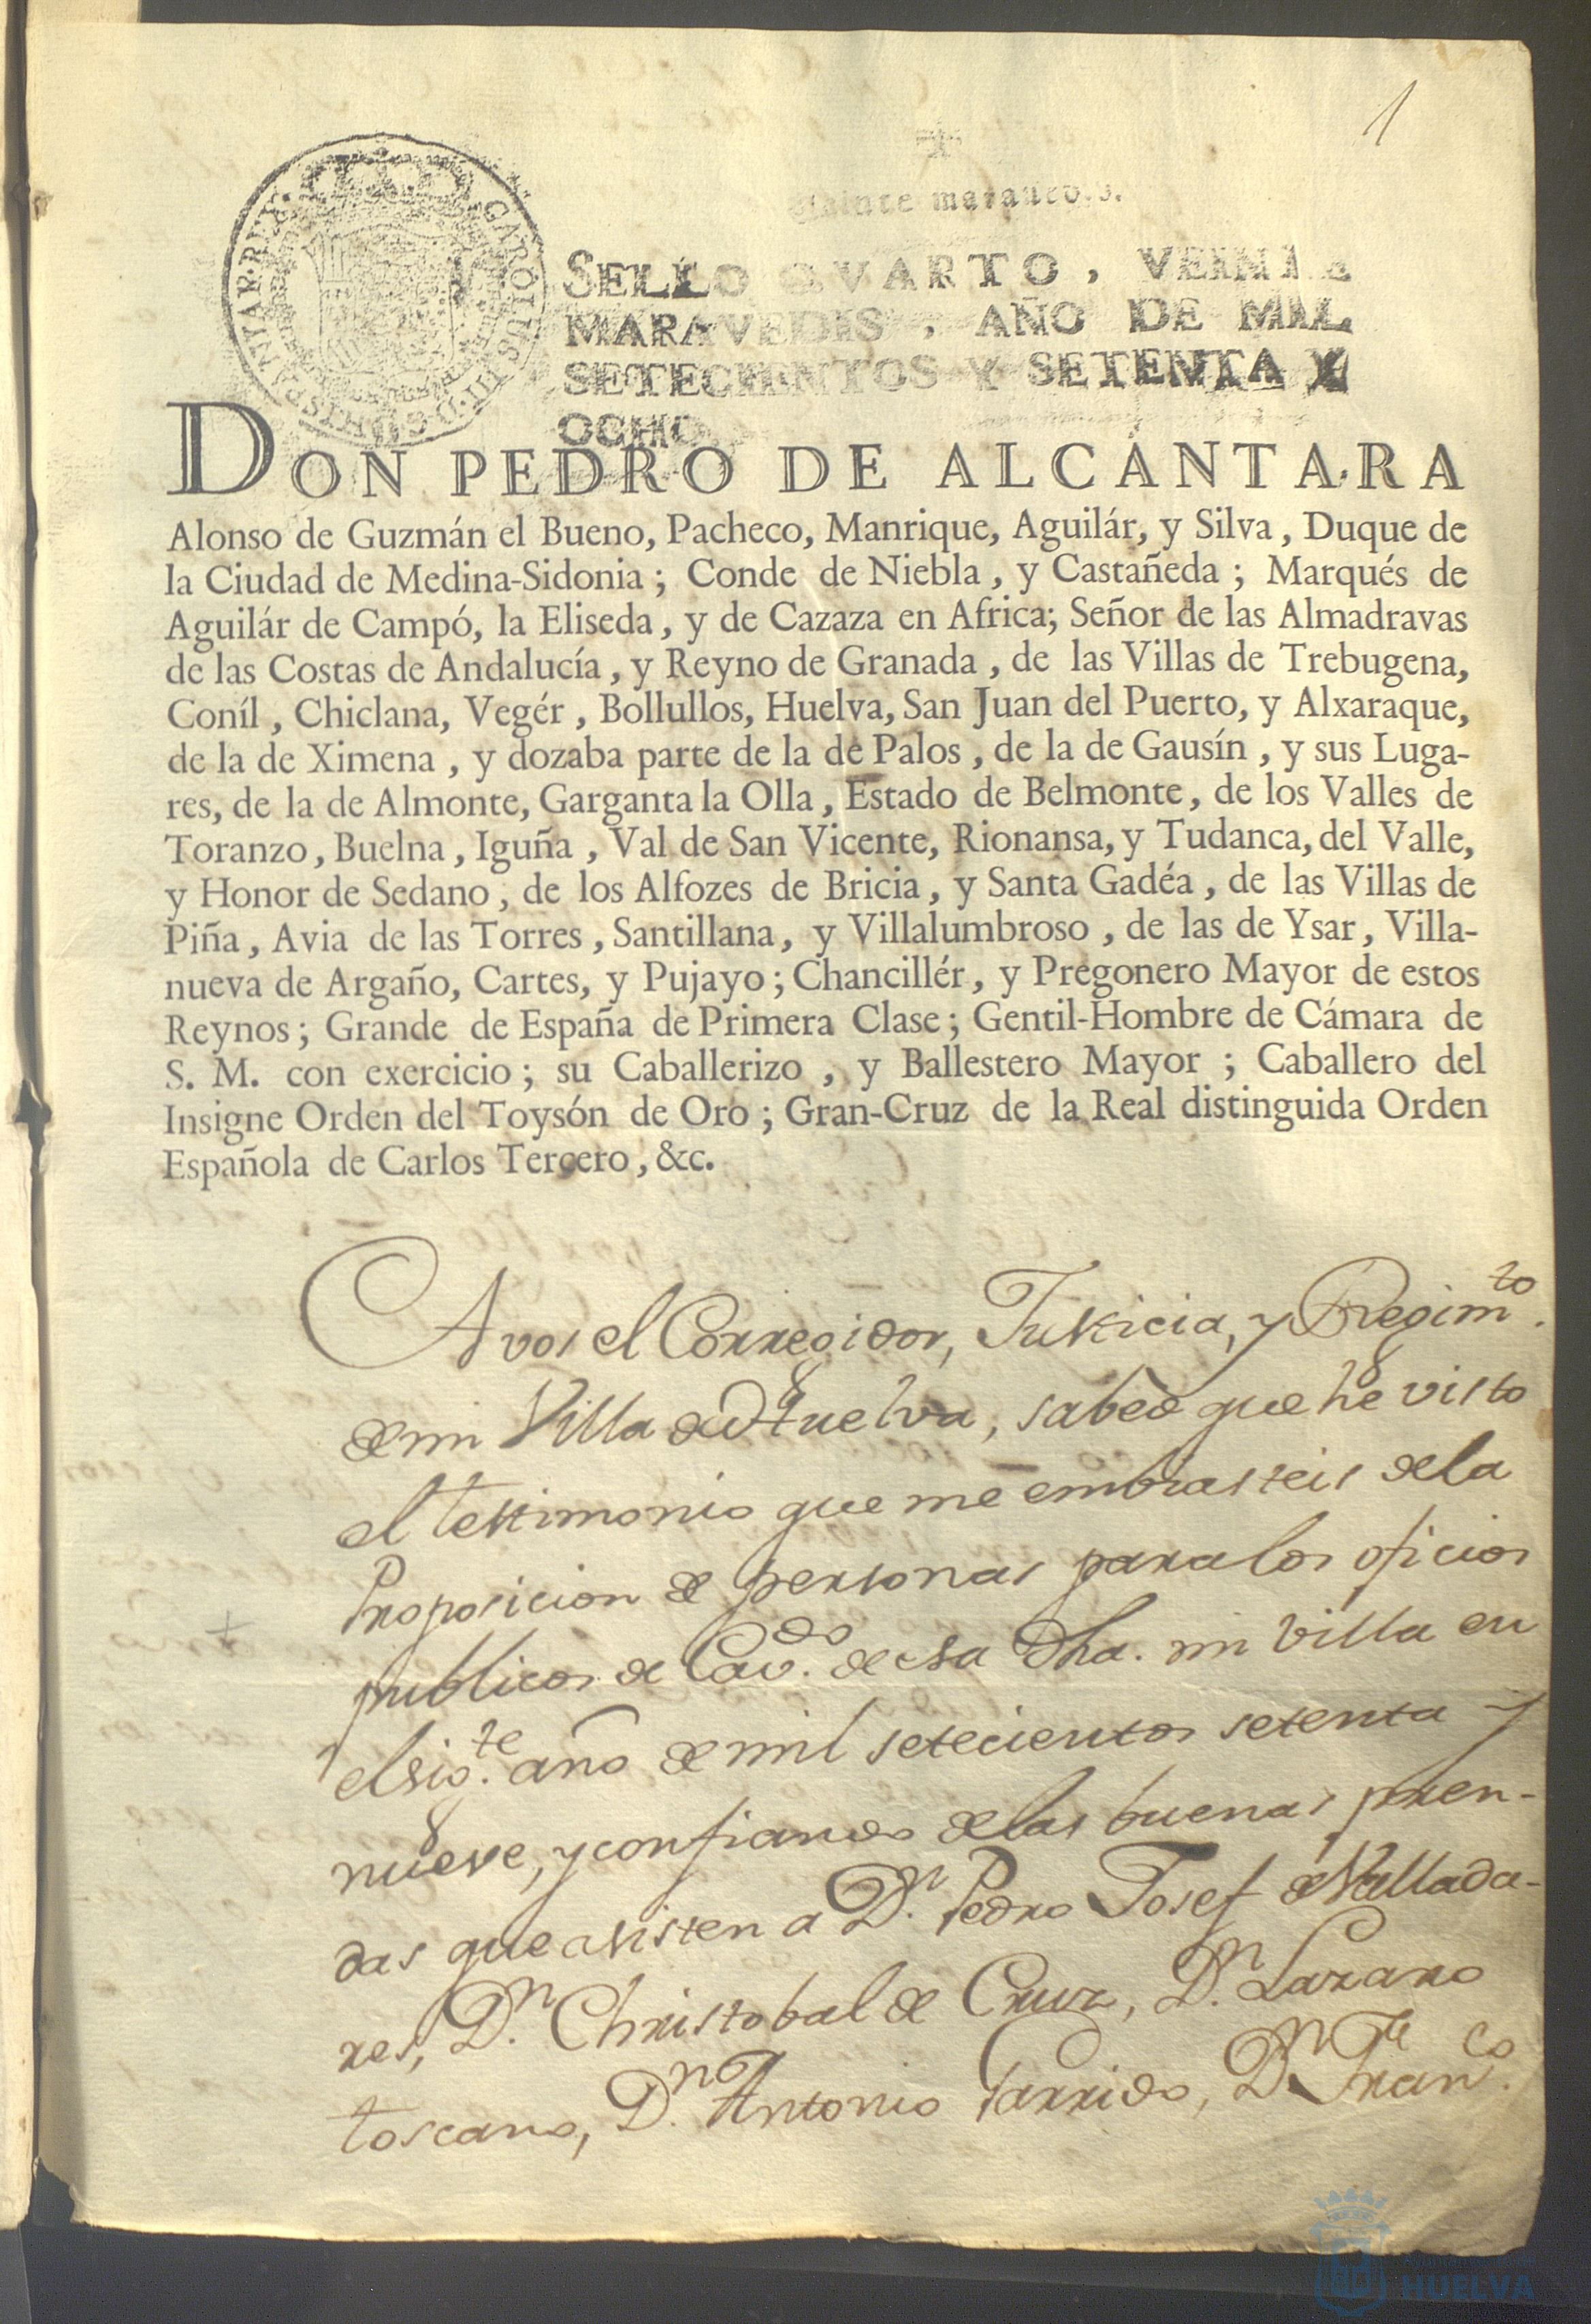 1
Veinte maravedis.
CAROLUS III D G HISPANIAR REX
SELLO QVARTO, VEINTE
MARAVEDIS, AÑO DE MIL
SETECIENTOS Y SETENTA Y
OCHO.
DON PEDRO DE ALCÁNTARA
Alonso de Guzmán el Bueno, Pacheco, Manrique, Aguilár, y Silva, Duque de
la Ciudad de Medina-Sidonia; Conde de Niebla, y Castañeda; Marqués de
Aguilár de Campó, la Eliseda, y de Cazaza en Africa; Señor de las Almadravas
de las Costas de Andalucía, y Reyno de Granada, de las Villas de Trebugena,
Coníl, Chiclana, Vegér, Bollullos, Huelva, San Juan del Puerto, y Alxaraque,
de la de Ximena, y dozaba parte de la de Palos, de la de Gausín, y sus Luga-
res, de la de Almonte, Garganta la Olla, Estado de Belmonte, de los Valles de
Toranzo, Buelna, Iguña, Val de San Vicente, Rionansa, y Tudanca, del Valle,
y Honor de Sedano, de los Alfozes de Bricia, y Santa Gadéa, de las Villas de
Piña, Avia de las Torres, Santillana, y Villalumbroso, de las de Ysar, Villa-
nueva de Argaño, Cartes, y Pujayo; Chancillér, y Pregonero Mayor de estos
Reynos; Grande de España de Primera Clase; Gentil-Hombre de Cámara de
S. M. con exercicio; su Caballerizo, y Ballestero Mayor; Caballero del
Insigne Orden del Toysón de Oro; Gran-Cruz de la Real distinguida Orden
Española de Carlos Tercero, &c.
A vos el Corregidor, Justicia, y Regim.to
de mi Villa de Huelva, sabèd que he visto
el testimonio que me embiasteis dela
Proposicion de personas para los oficios
publicos de Cav.do de esa dha. mi villa en
el sig.te año de mil setecientos setenta y
nueve, y confiando delas buenas pren-
das que asisten a D.n Pedro Josef de Vallada-
res, D.n Christobal de Cruz, D.n Lazaro
toscano, D.n Antonio Garrido, D.n Fran.co
HUELVA